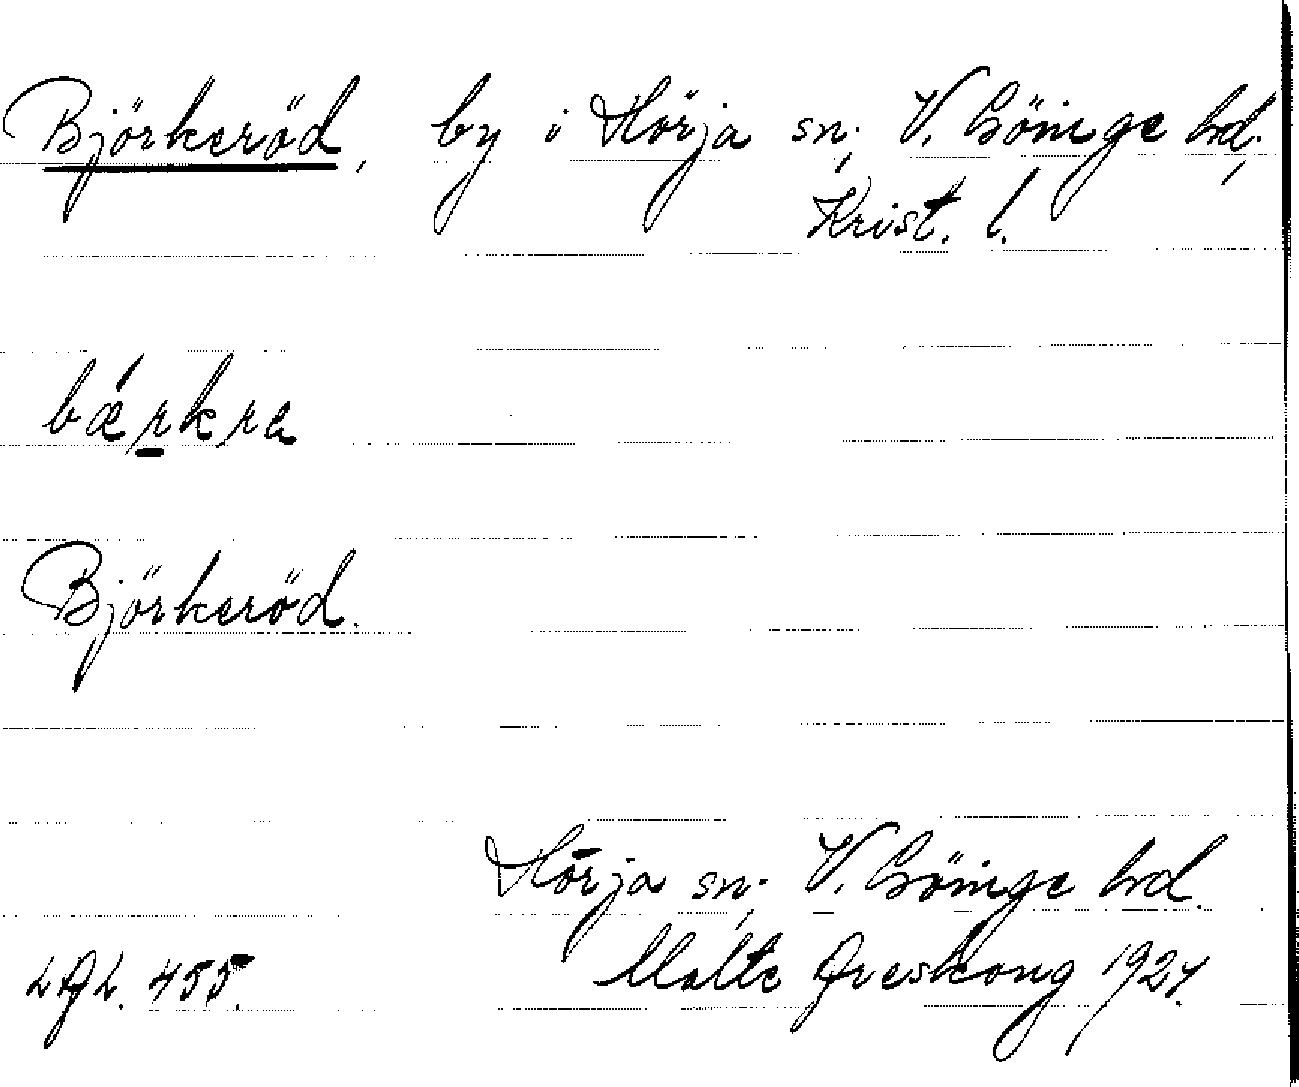 Björkeröd, by i Hörja sn, V. Göinge hd,
Krist. l.
bǽrkra
Björkeröd.
Hörja sn, V. Göinge hd.
LAL. 455. Malte Areskoug 1927.